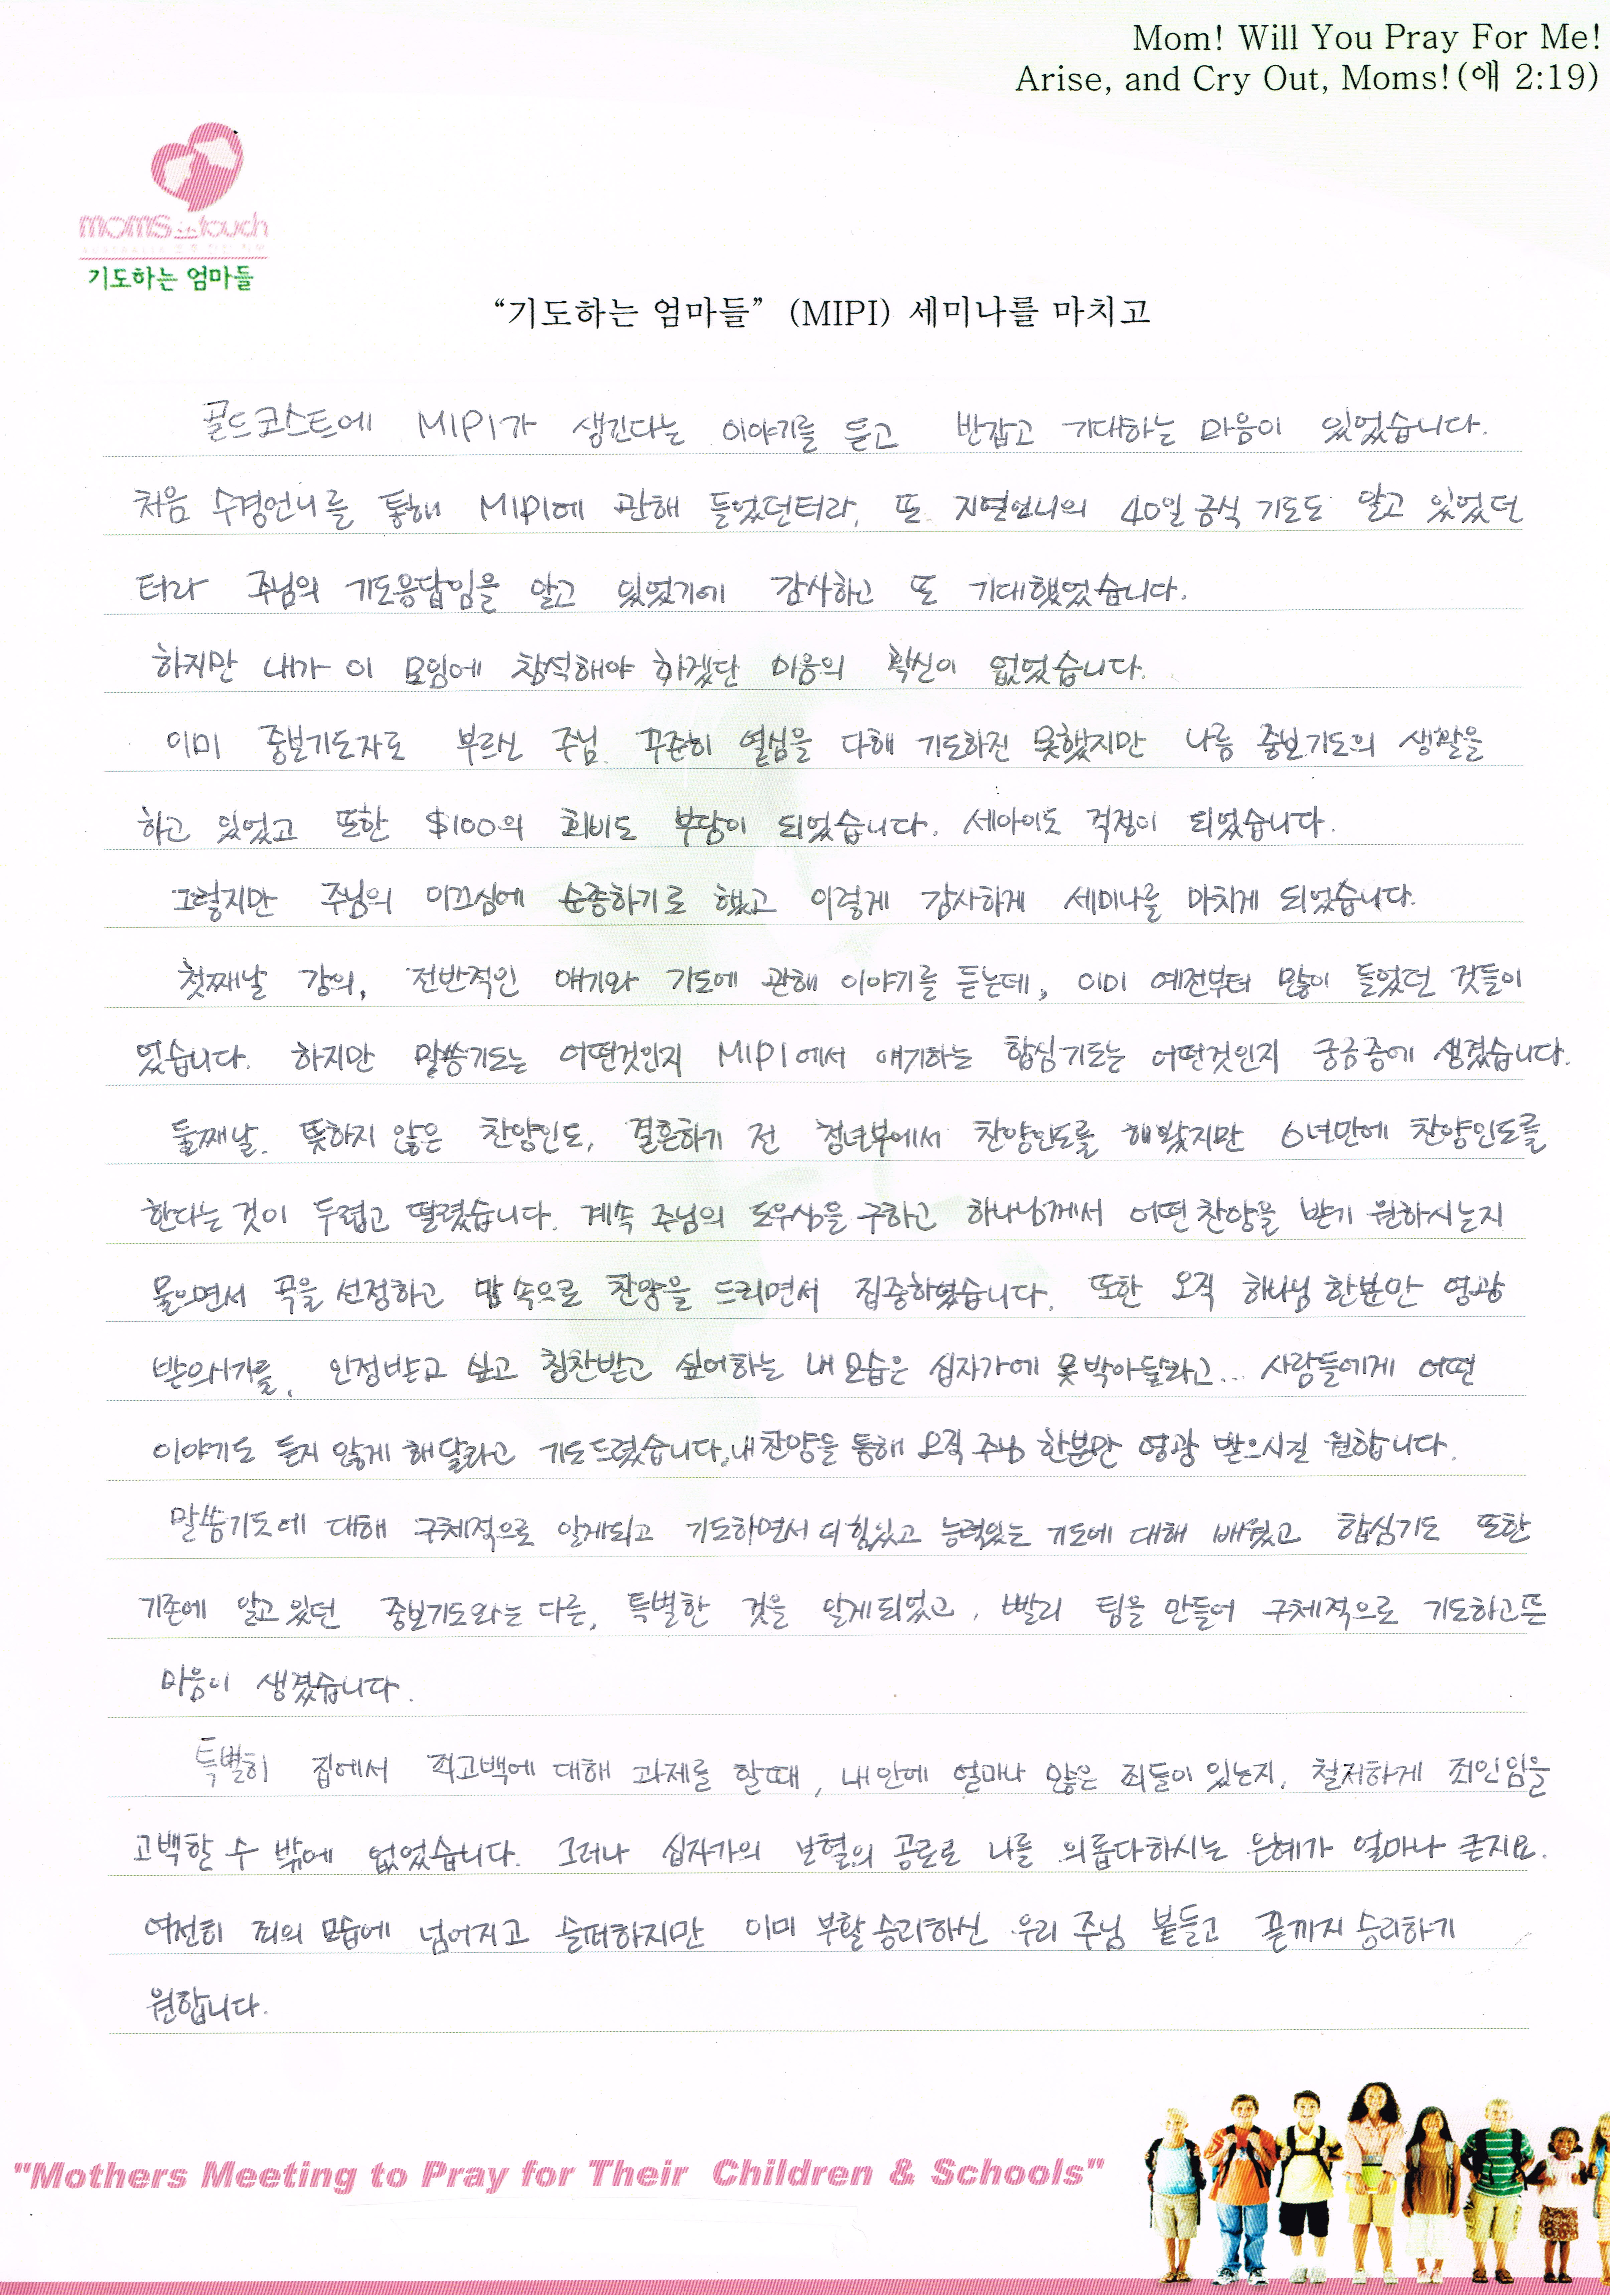 Mom! Will You Pray For Me!
Arise, and Cry Out, Moms!(애 2:19)
moms in touch
기도하는 엄마들
“기도하는 엄마들” (MIPI) 세미나를 마치고
골드코스트에 MIPI가 생긴다는 이야기를 듣고 반갑고 기대하는 마음이 있었습니다.
처음 수경언니를 통해 MIPI에 관해 들었던터라, 또 지연언니의 40일 금식 기도도 알고 있었던
터라 주님의 기도응답임을 알고 있었기에 감사하고 또 기대했었습니다.
하지만 내가 이 모임에 참석해야 하겠단 마음의 확신이 없었습니다.
이미 중보기도자로 부르신 주님. 꾸준히 열심을 다해 기도하진 못했지만 나름 중보기도의 생활을
하고 있었고 또한 $100의 회비도 부담이 되었습니다. 세아이도 걱정이 되었습니다.
그렇지만 주님의 이끄심에 순종하기로 했고 이렇게 감사하게 세미나를 마치게 되었습니다.
첫째날 강의, 전반적인 얘기와 기도에 관해 이야기를 듣는데, 이미 예전부터 많이 들었던 것들이
었습니다. 하지만 말씀기도는 어떤것인지 MIPI에서 얘기하는 합심기도는 어떤것인지 궁금증에 생겼습니다.
둘째날. 뜻하지 않은 찬양인도, 결혼하기 전 청년부에서 찬양인도를 해왔지만 6년만에 찬양인도를
한다는 것이 두렵고 떨렸습니다. 계속 주님의 도우심을 구하고 하나님께서 어떤 찬양을 받기 원하시는지
물으면서 곡을 선정하고 맘 속으로 찬양을 드리면서 집중하였습니다. 또한 오직 하나님 한분만 영광
받으시기를, 인정받고 싶고 칭찬받고 싶어하는 내 모습은 십자가에 못 박아달라고... 사람들에게 어떤
이야기도 듣지 않게 해달라고 기도드렸습니다. 내 찬양을 통해 오직 주님 한분만 영광 받으시길 원합니다.
말씀기도에 대해 구체적으로 알게되고 기도하면서 더 힘있고 능력있는 기도에 대해 배웠고 합심기도 또한
기존에 알고 있던 중보기도와는 다른, 특별한 것을 알게되었고, 빨리 팀을 만들어 구체적으로 기도하고픈
마음이 생겼습니다.
특별히 집에서 죄고백에 대해 과제를 할때, 내안에 얼마나 많은 죄들이 있는지, 철저하게 죄인임을
고백할 수 밖에 없었습니다. 그러나 십자가의 보혈의 공로로 나를 의롭다하시는 은혜가 얼마나 큰지요.
여전히 죄의 모습에 넘어지고 슬퍼하지만 이미 부활 승리하신 우리 주님 붙들고 끝까지 승리하기
원합니다.
"Mothers Meeting to Pray for Their Children & Schools"